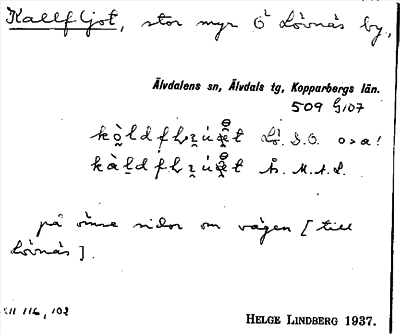 Kallfljot, stor myr Ö Lövnäs by,
Älvdalens sn, Älvdals tg, Kopparbergs län.
509 G107
Lö. S.O. o>a!
Ås. M.A.L.
på ömse sidor om vägen [till
Lövnäs].
XII 116, 102
HELGE LINDBERG 1937.